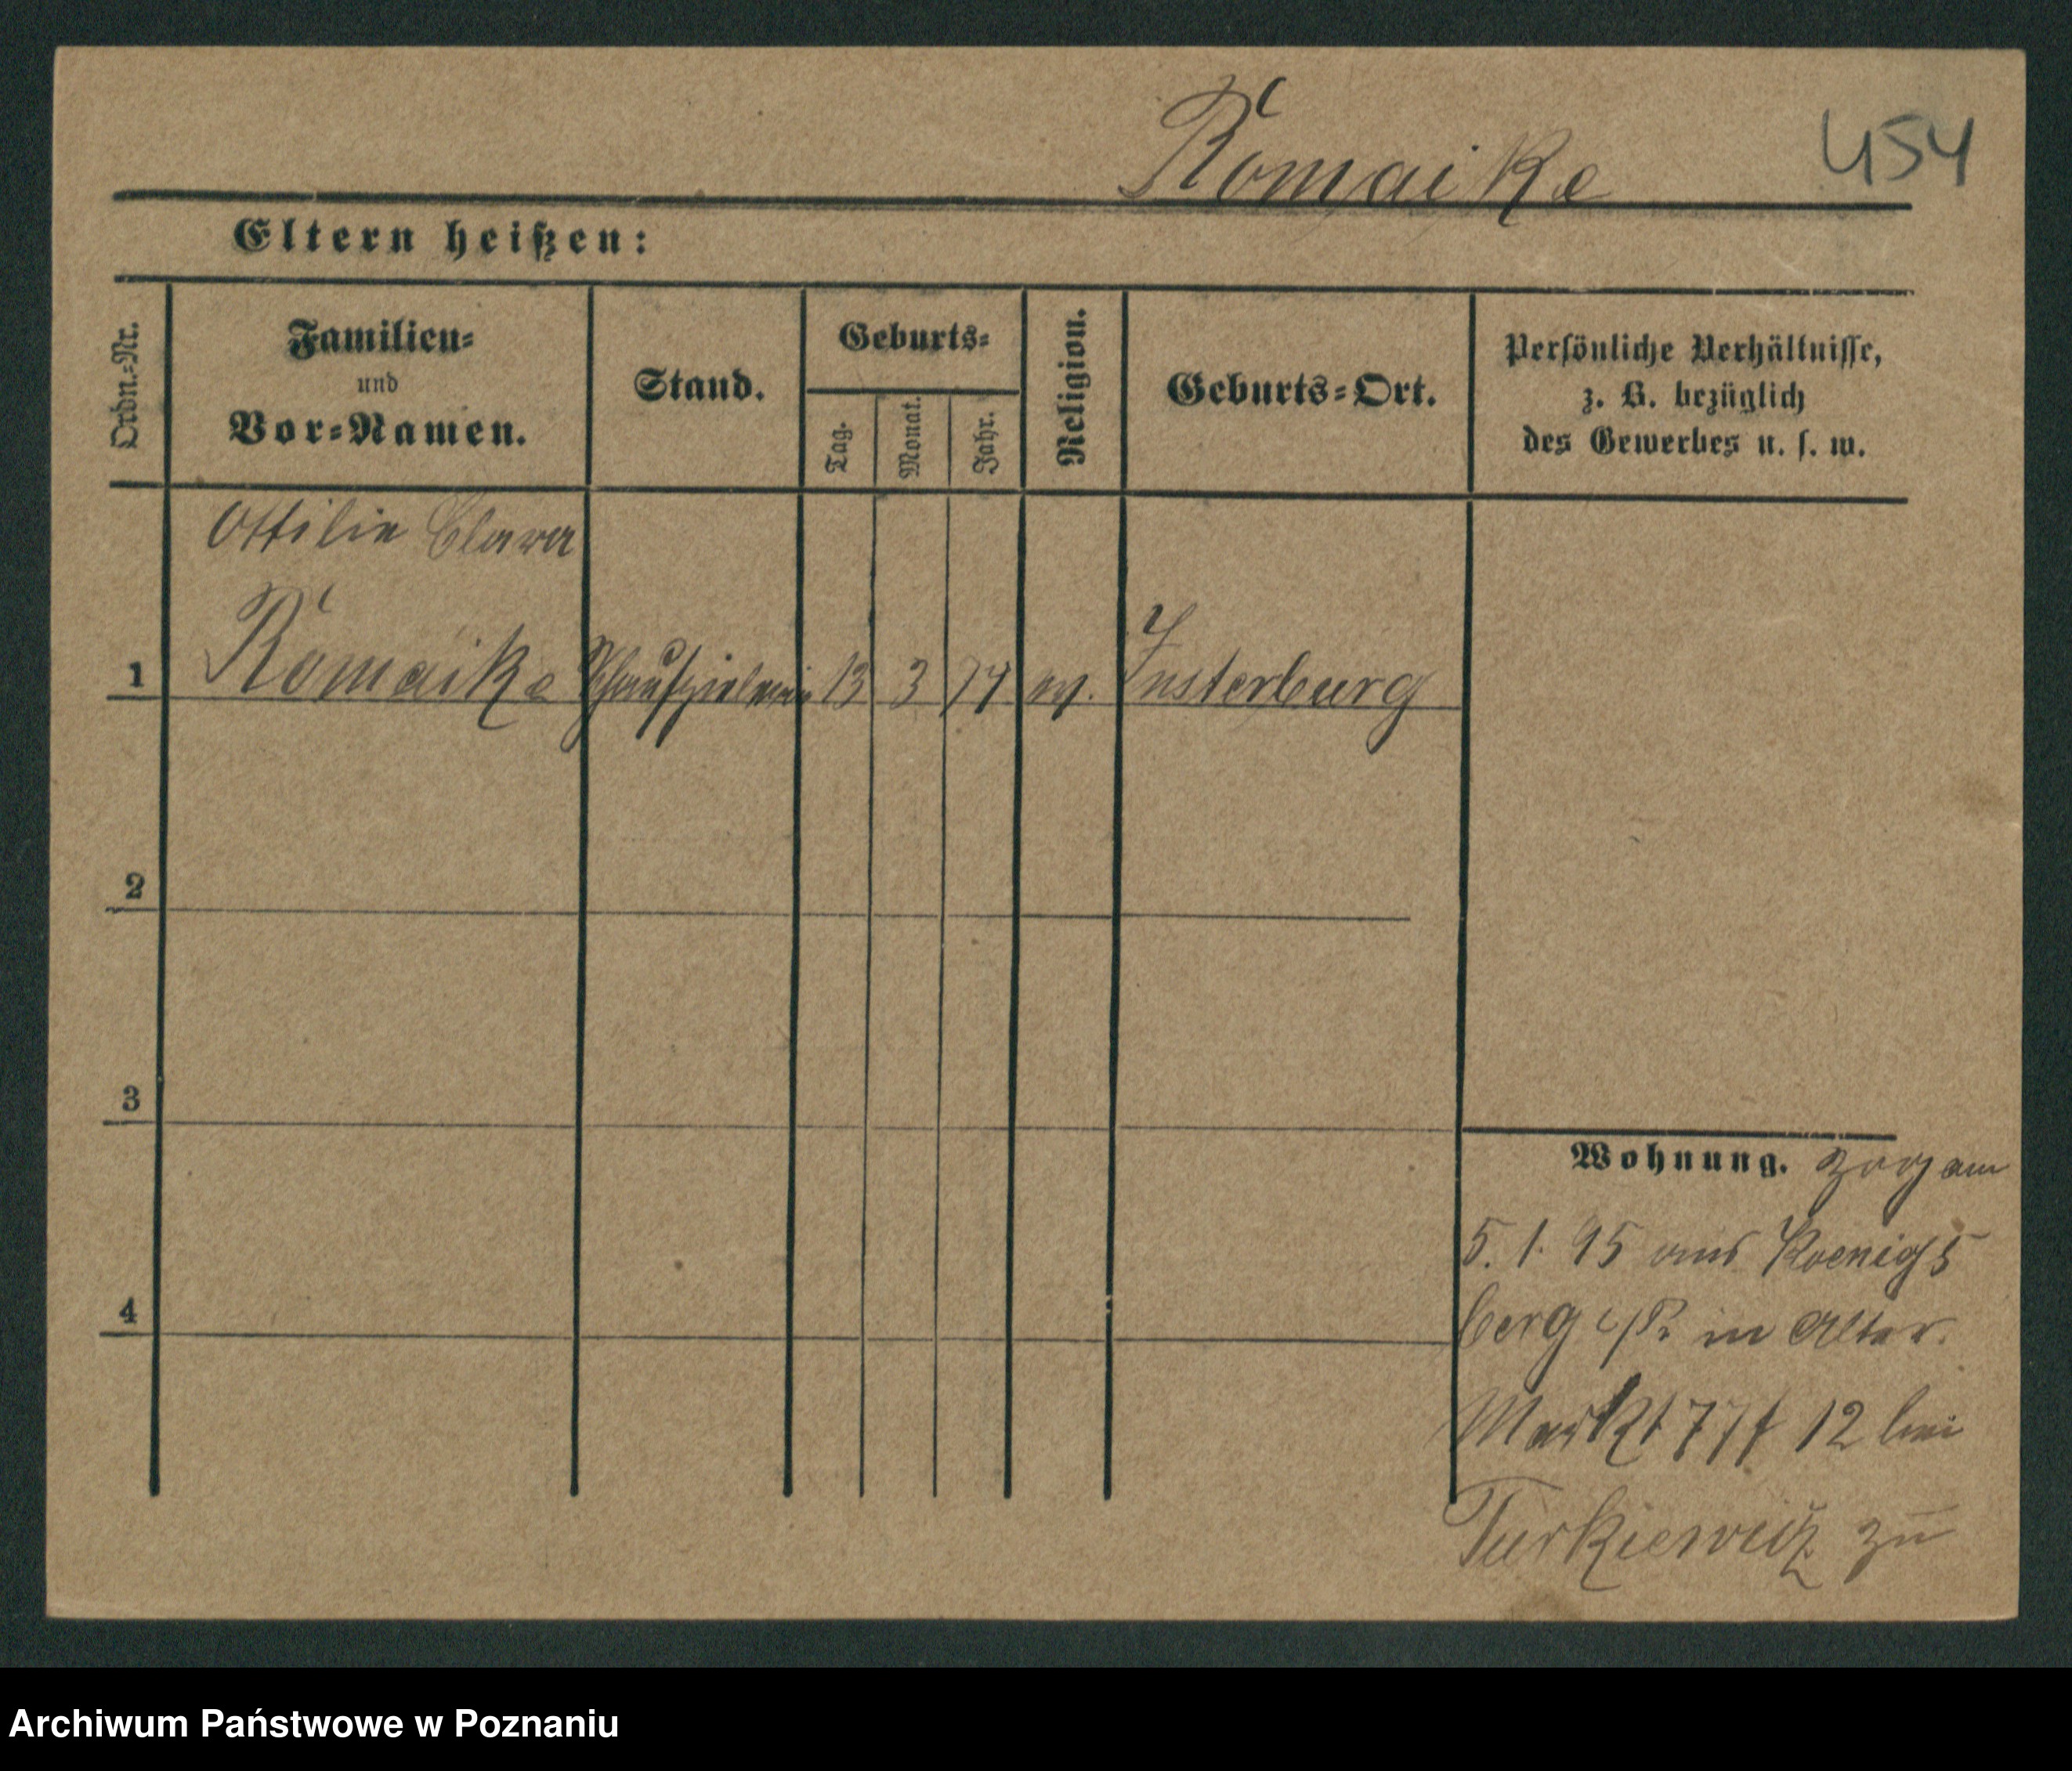 Romaike
454
Eltern heißen:
Ordn.-Nr.
Familien-
und
Vor-Namen.
Stand.
Geburts-
Tag.
Monat.
Jahr.
Religion.
Geburts-Ort.
Persönliche Verhältnisse,
z. B. bezüglich
des Gewerbes u. s. w.
Ottilie Clara
1 Romaike Schauspielerin 13 3 74 ev. Insterburg
2
3
4
Wohnung. zog am
5. 1. 95 aus Koenigs
berg i/Pr in Alter.
Markt 77 12 bei
Turkiewicz zu
Archiwum Państwowe w Poznaniu